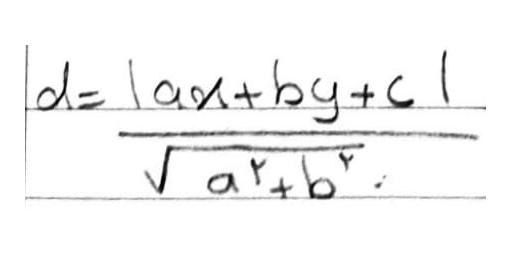 d = |ax+by+c|
√a²+b².